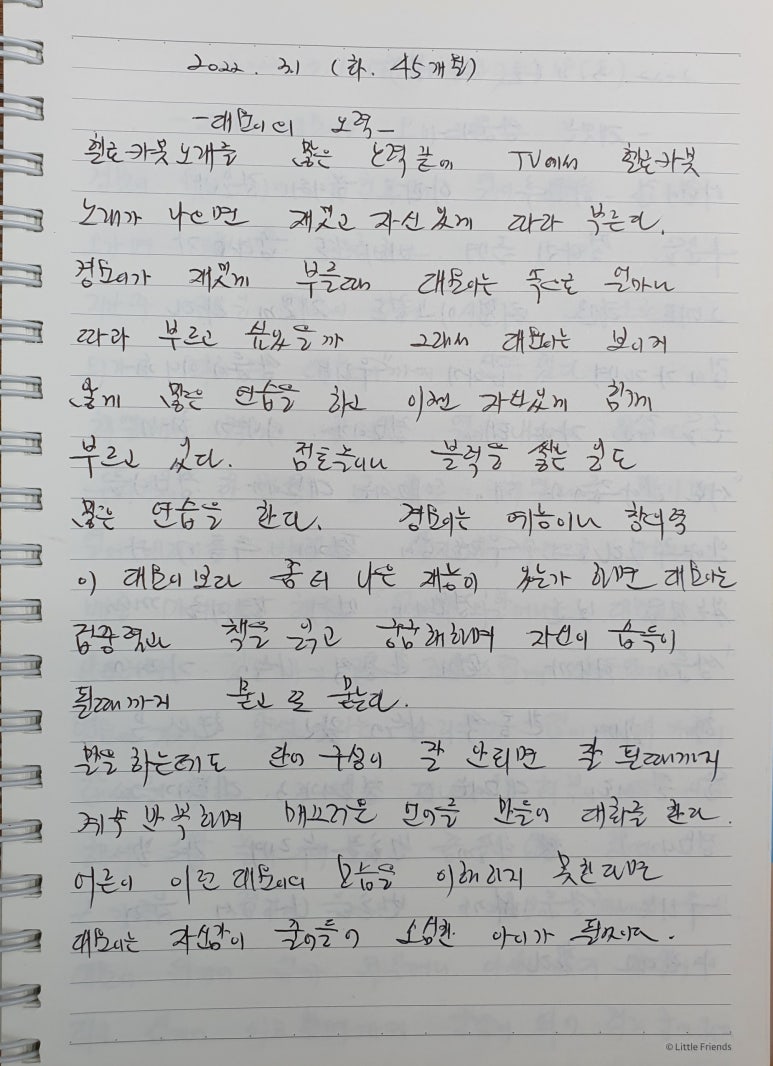 2022. 3.1 (화. 45개월)
-태오이의 노력-
헬로카봇 노래를 많은 노력 끝에 TV에서 헬로카봇
노래가 나오면 재밌고 자신있게 따라 부른다.
경오이가 재밌게 부를때 태오이는 속으로 얼마나
따라 부르고 싶었을까 그래서 태오이는 보이지
않게 많은 연습을 하고 이젠 자신있게 힘차게
부르고 있다. 점토놀이나 블럭을 쌓는 일도
많은 연습을 한다. 경오이는 예능이나 창의력
이 태오이보다 좀 더 나은 재능이 있는가 하면 태오이는
집중력과 책을 읽고 궁금해하며 자신이 습득이
될때까지 묻고 또 묻는다.
말을 하는데도 단어 구성이 잘 안되면 잘 될때까지
계속 반복하며 매끄러운 언어를 만들어 대화를 한다.
어른이 이런 태오이의 모습을 이해하지 못한다면
태오이는 자신감이 줄어들어 소심한 아이가 될것이다.
© Little Friends